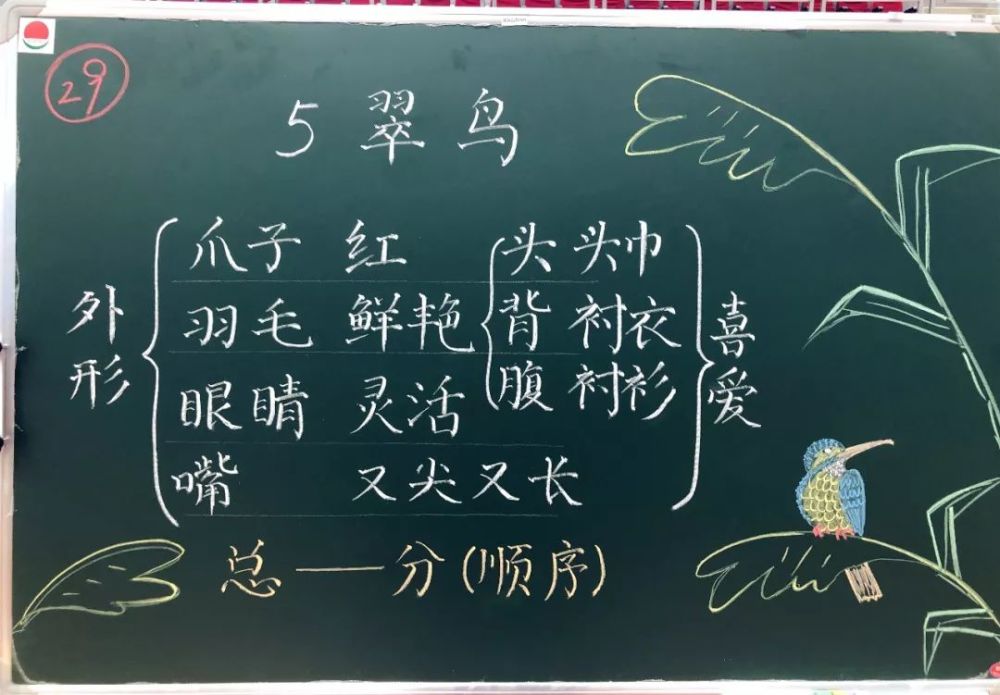 29
5 翠鸟
外形
爪子 红
羽毛 鲜艳
眼睛 灵活
嘴 又尖又长
头 头巾
背 衬衣
腹 衬衫
喜爱
总——分(顺序)